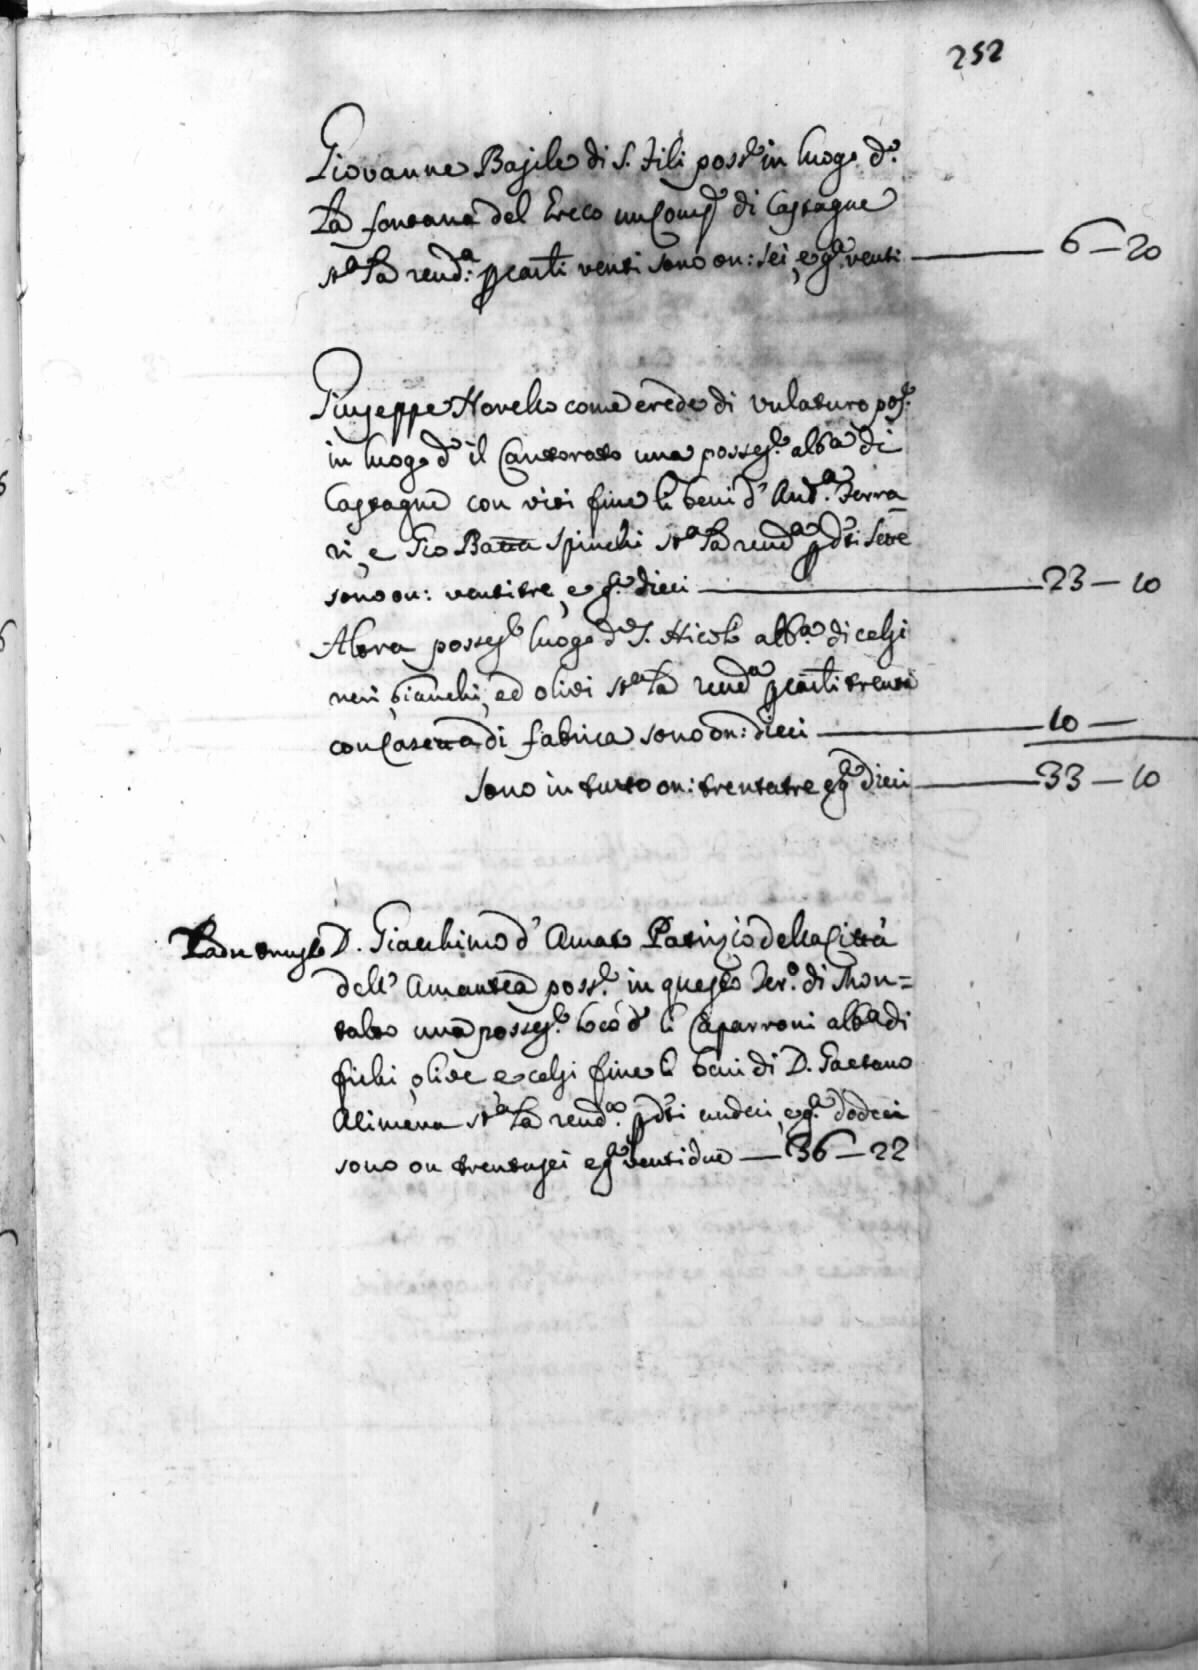 252
Giovanne Basile di S. Fili poss.e in luogo d.o
La fontana del Greco di Castagne
st.a la rend.a p carli venti sono on: sei, e g.a venti — 6 — 20
Giuseppe Novello come erede di Vulaturo pos.e
in luogo d.o il Cantorato una possess.e alb.a di
Castagne con viti fine li beni d'And.a Ferra
ri, e Gio Batta Spinelli st.a la rend.a p d.ti sette
sono on: ventitre, e g.a dieci — 23 — 10
Altra possess.e luogo d.o S. Nicola alb.a di celsi
neri, bianchi, ed olivi st.a la rend.a p carli trenta
con Casetta di fabrica sono on: dieci — 10 —
Sono in tutto on: trentatre e g.a dieci — 33 — 10
D. Giacchino d'Amato Patrizio della Città
dell'Amantea poss.e in questo Ter.o di Mon=
talto una possess.e loco d.o li Caparroni alb.a di
fichi, olive, e celsi fine li beni di D. Gaetano
Alimena st.a la rend.a p d.ti undeci, e g.a dodeci
sono on trentasei e g.a ventidue — 36 — 22